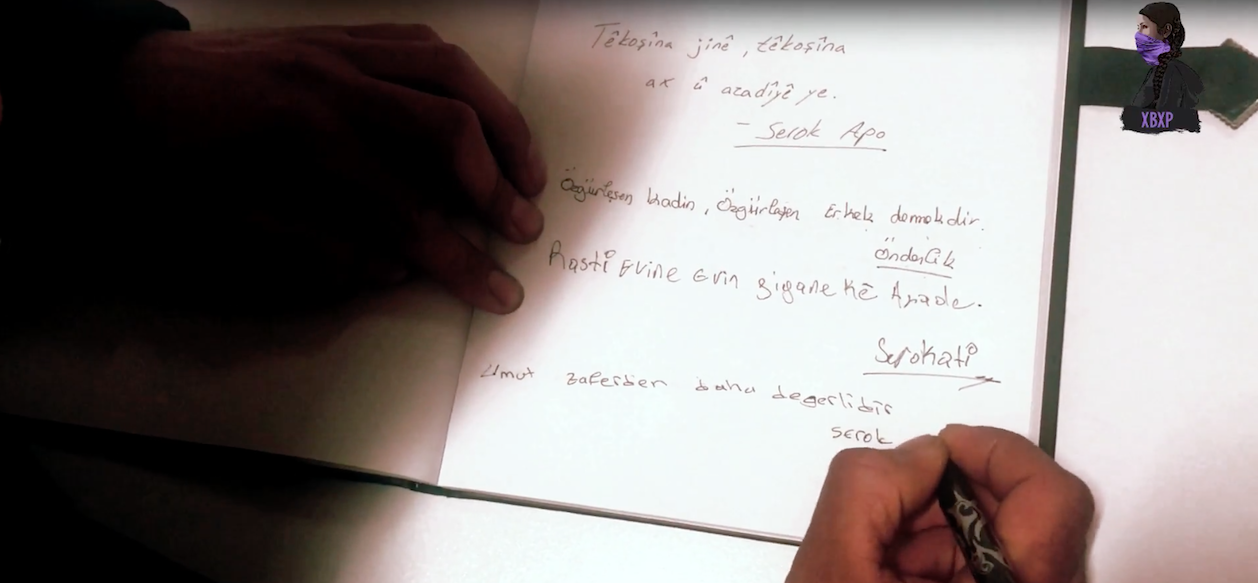 Têkoşîna jinê, têkoşîna
ax û azadîyê ye.
- Serok Apo
Özgürleşen kadin, Özgürleşen Erkek demekdir.
Önderlik
Rastî Evine Evin Jiyane kê Azade.
Serokatî
Umut zaferden daha degerlidir
serok
XBXP